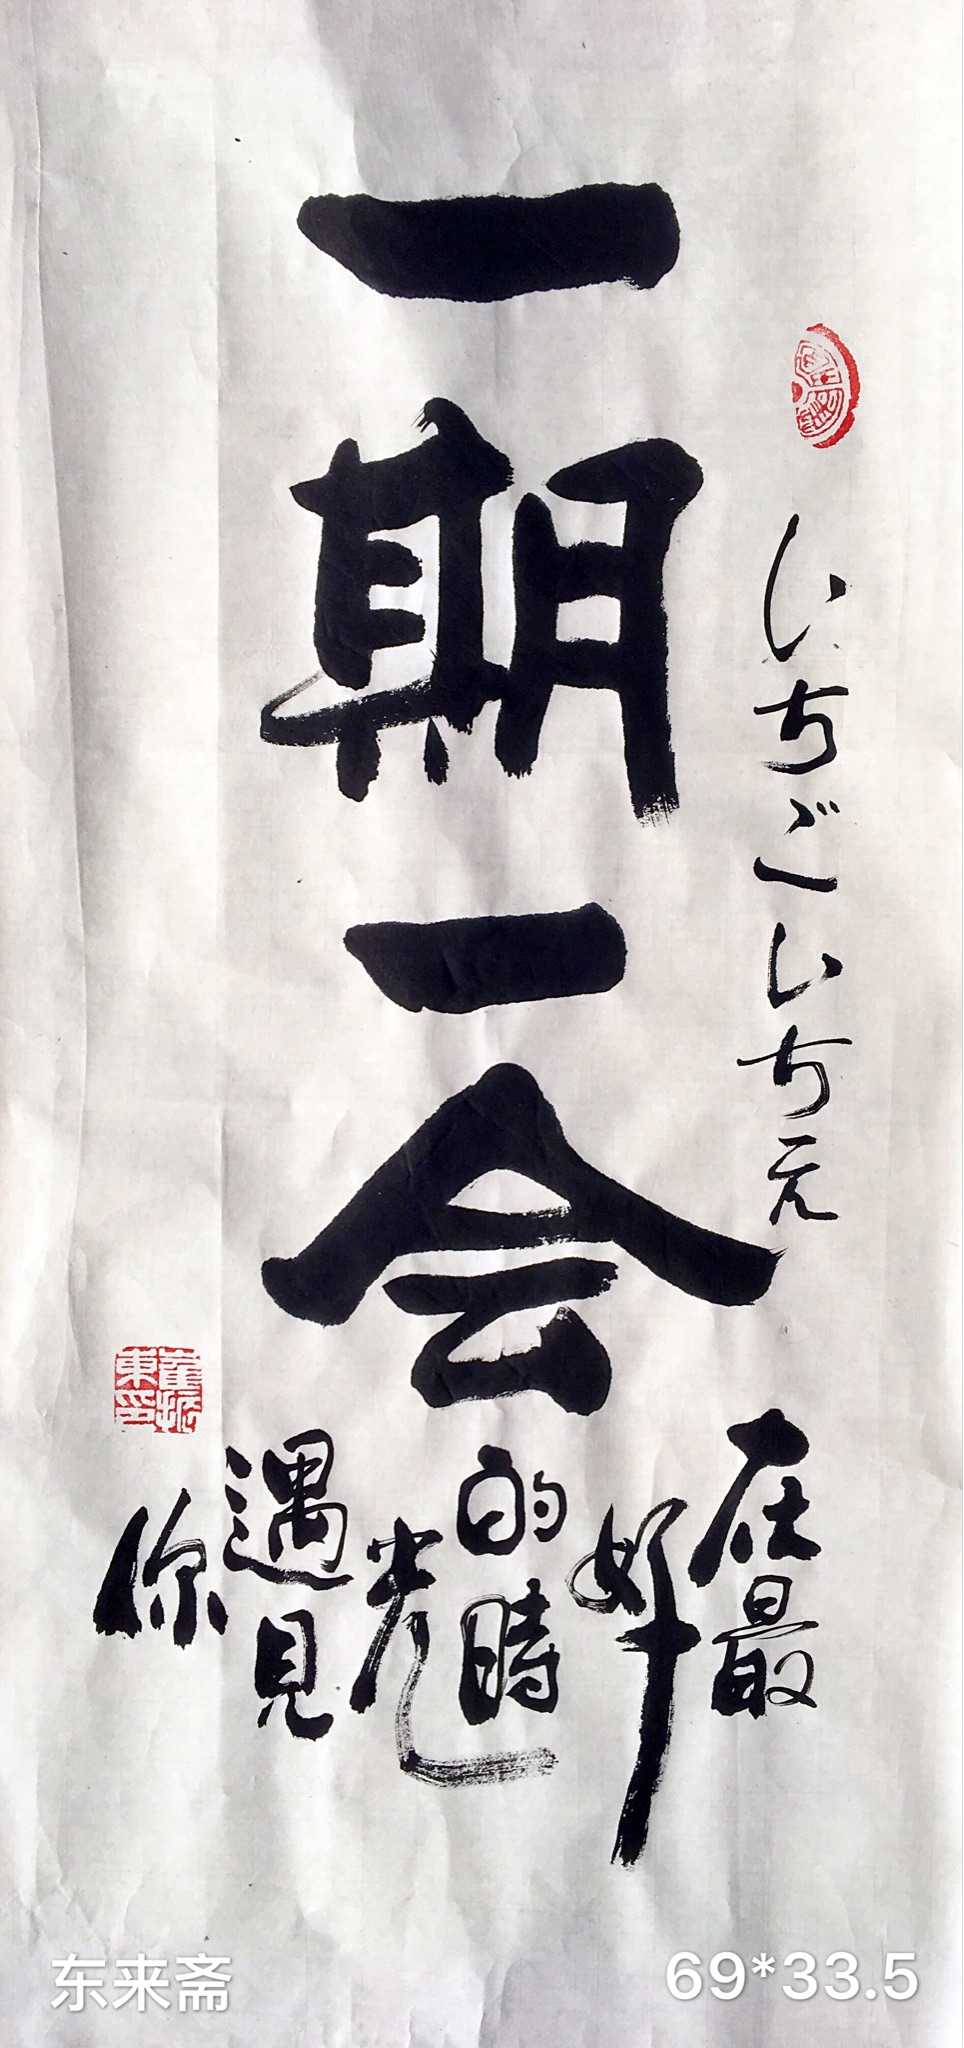 一期一会
いちごいち元
在最
好
的時
光
遇見
你
东来斋
69*33.5